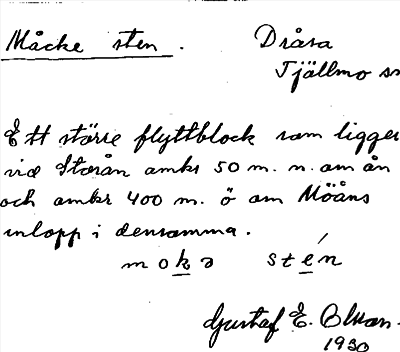 Måcke sten. Dråsa
Tjällmo sn
Ett större flyttblock som ligger
vid Storån omkr 50 m. n. om ån
och omkr 400 m. ö om Möåns
inlopp i densamma.
moke stén
Gustaf E. Olson.
1930